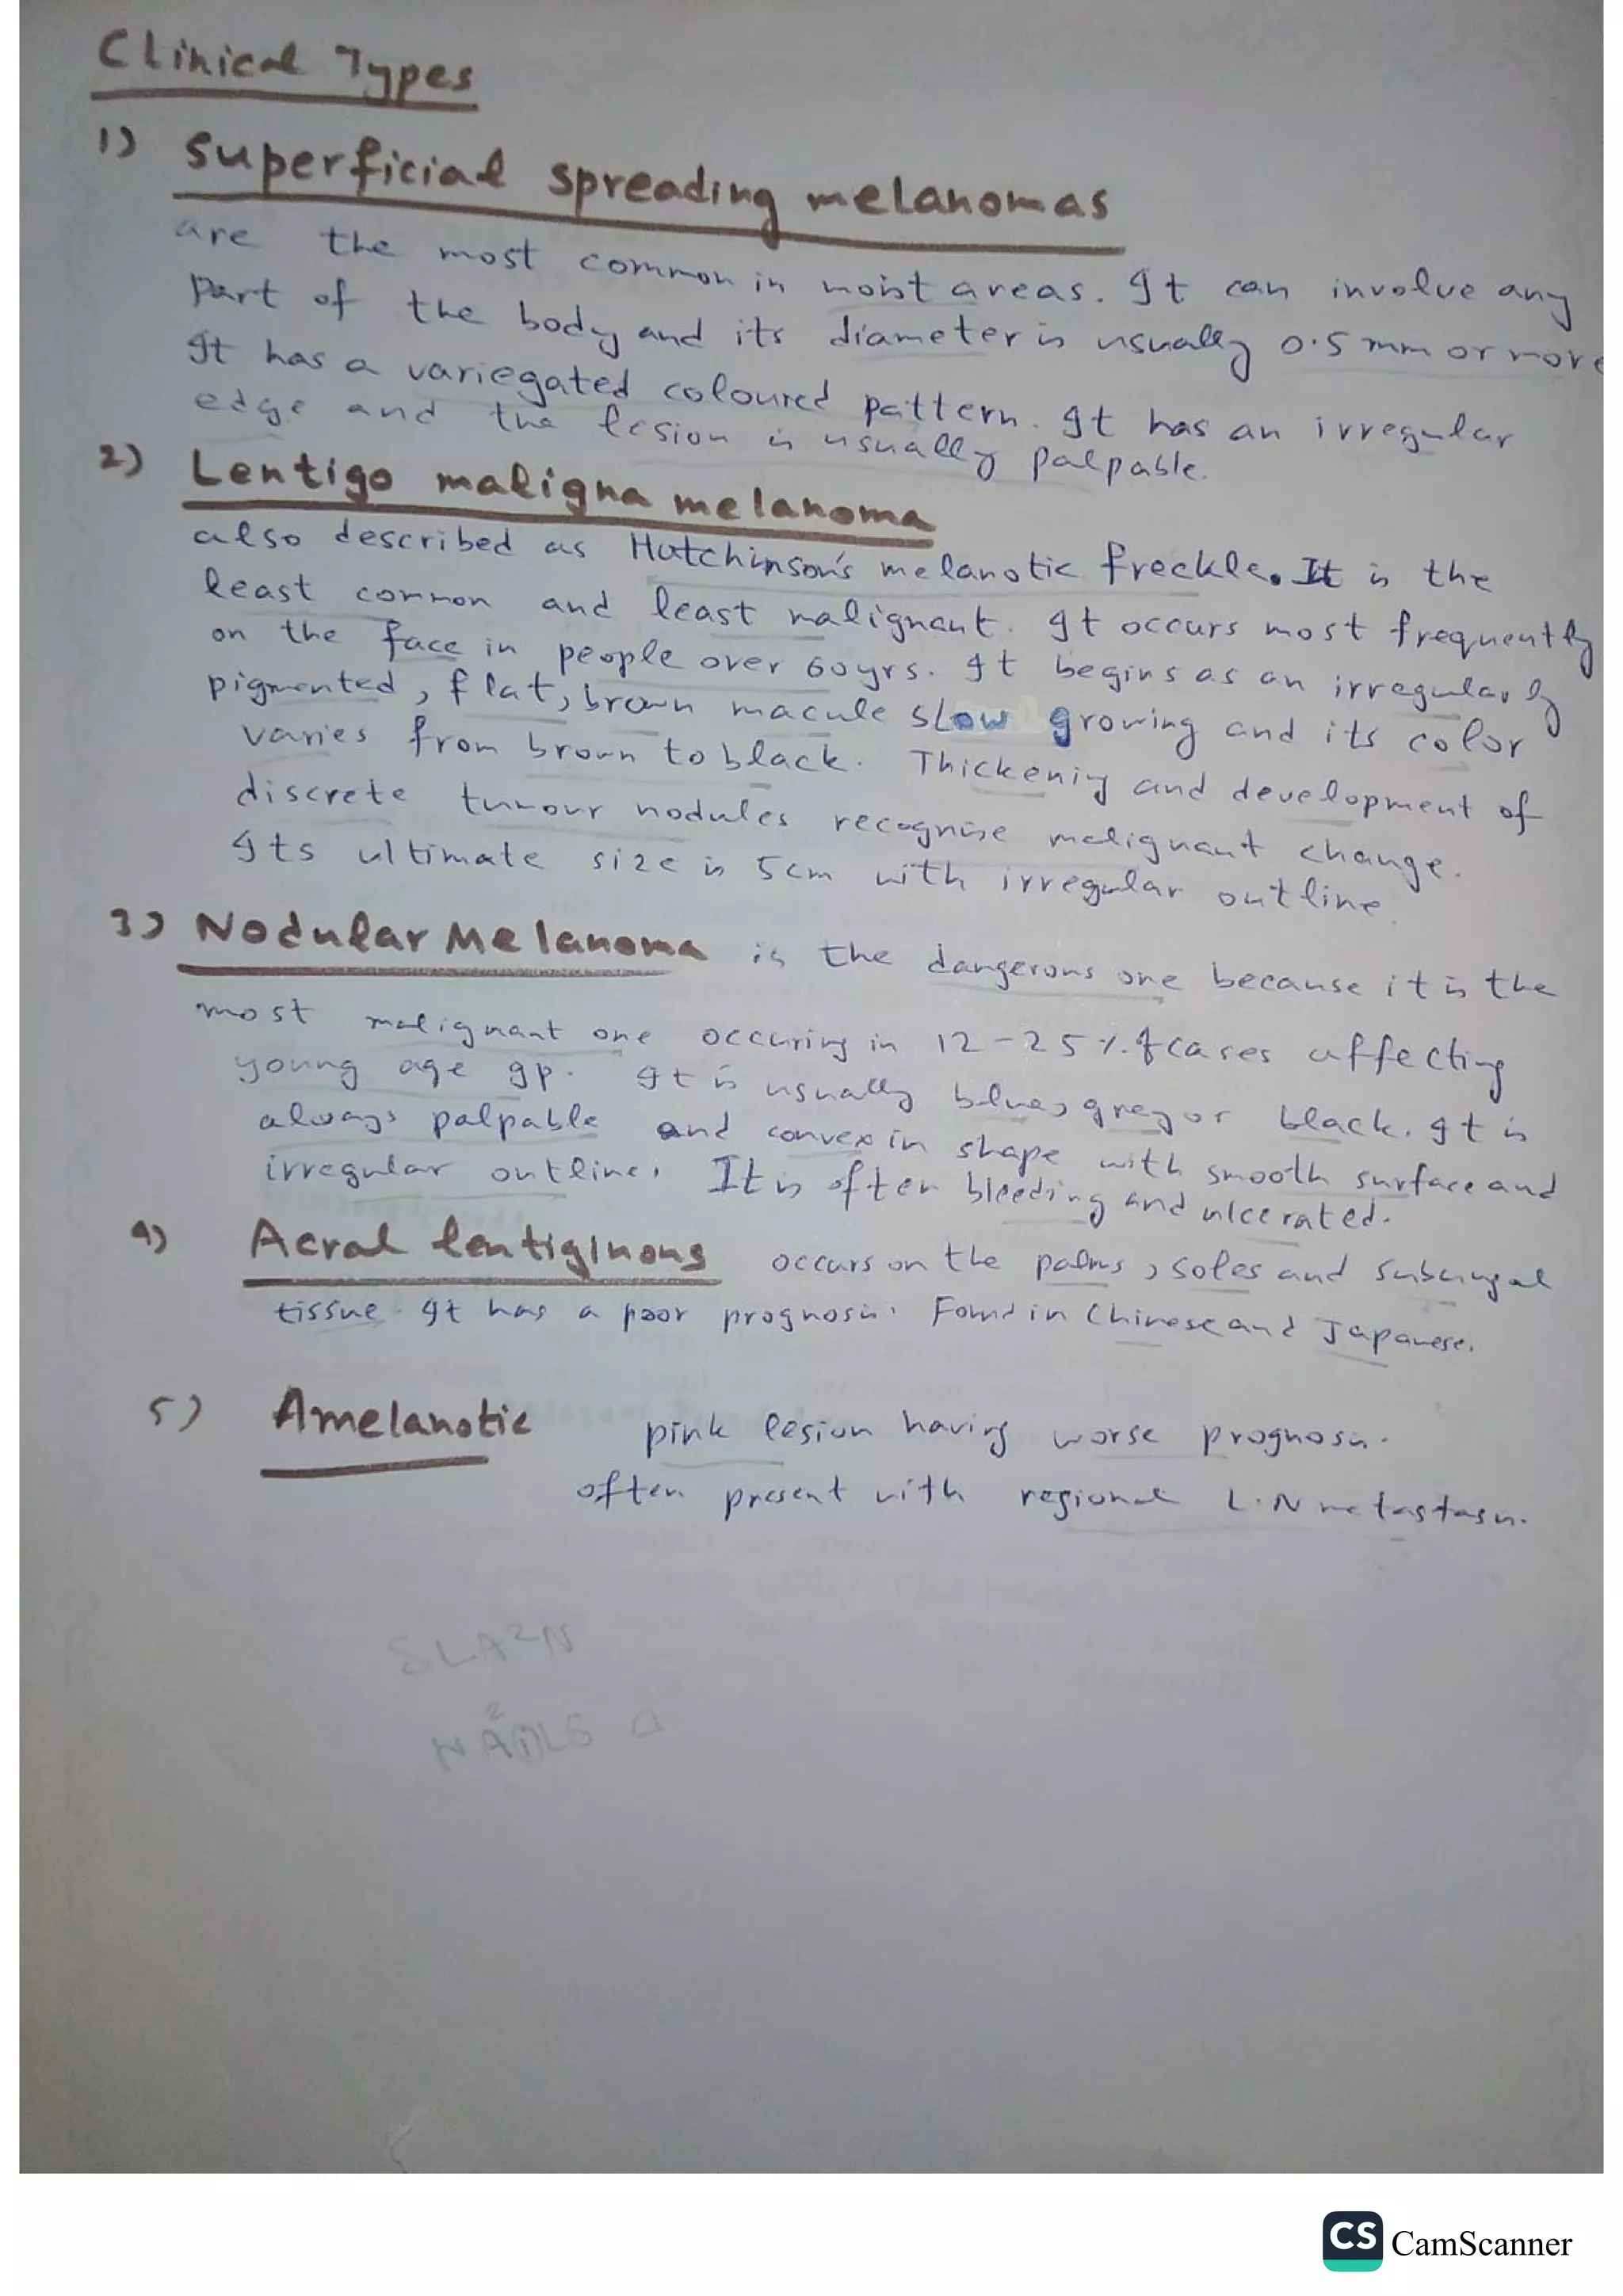 Clinical Types
1) Superficial spreading melanomas
are the most common in moist areas. It can involve any
part of the body and its diameter is usually 0.5 mm or more
It has a variegated coloured pattern. It has an irregular
edge and the lesion is usually palpable.
2) Lentigo maligna melanoma
also described as Hutchinson's melanotic freckle. It is the
least common and least malignant. It occurs most frequently
on the face in people over 60yrs. It begins as an irregularly
pigmented, flat, brown macule slow growing and its color
varies from brown to black. Thickening and development of
discrete tumour nodules recognise malignant change.
Its ultimate size is 5cm with irregular outline.
3) Nodular Melanoma is the dangerous one because it is the
most malignant one occuring in 12-25% of cases affecting
young age gp. It is usually blue, grey or black. It is
always palpable and convex in shape with smooth surface and
irregular outline. It is often bleeding and ulcerated.
4) Acral lentiginous occurs on the palms, soles and subungal
tissue. It has a poor prognosis. Found in Chinese and Japanese.
5) Amelanotic pink lesion having worse prognosis.
often present with regional L.N metastasis.
SLA²N
NA²(i)LS
CS CamScanner